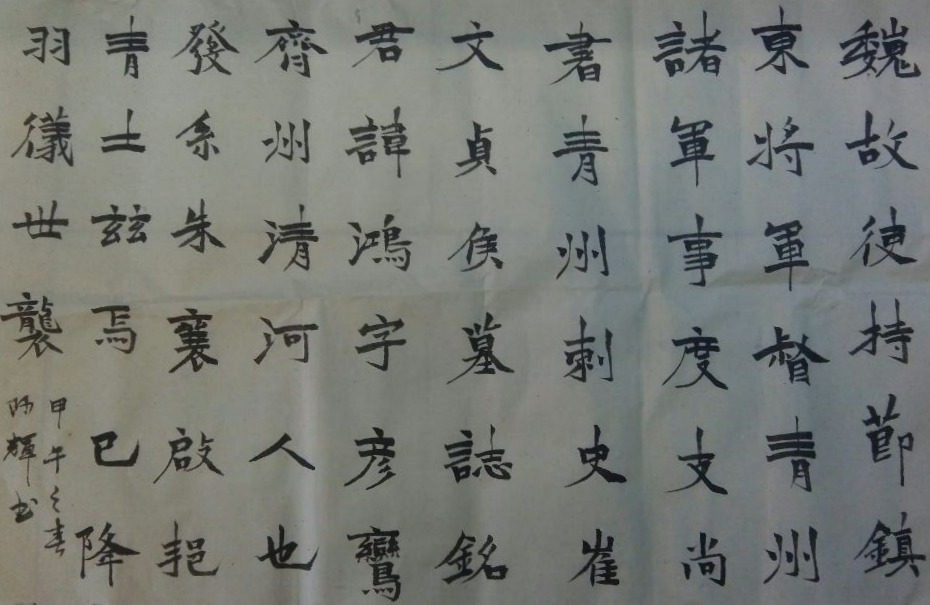 魏故使持節鎮
東將軍督青州
諸軍事度支尚
書青州刺史崔
文貞侯墓誌銘
君諱鴻字彥鸞
齊州清河人也
發系朱襄啟挹
青土兹焉已降
羽儀世襲
甲午之春
輝书